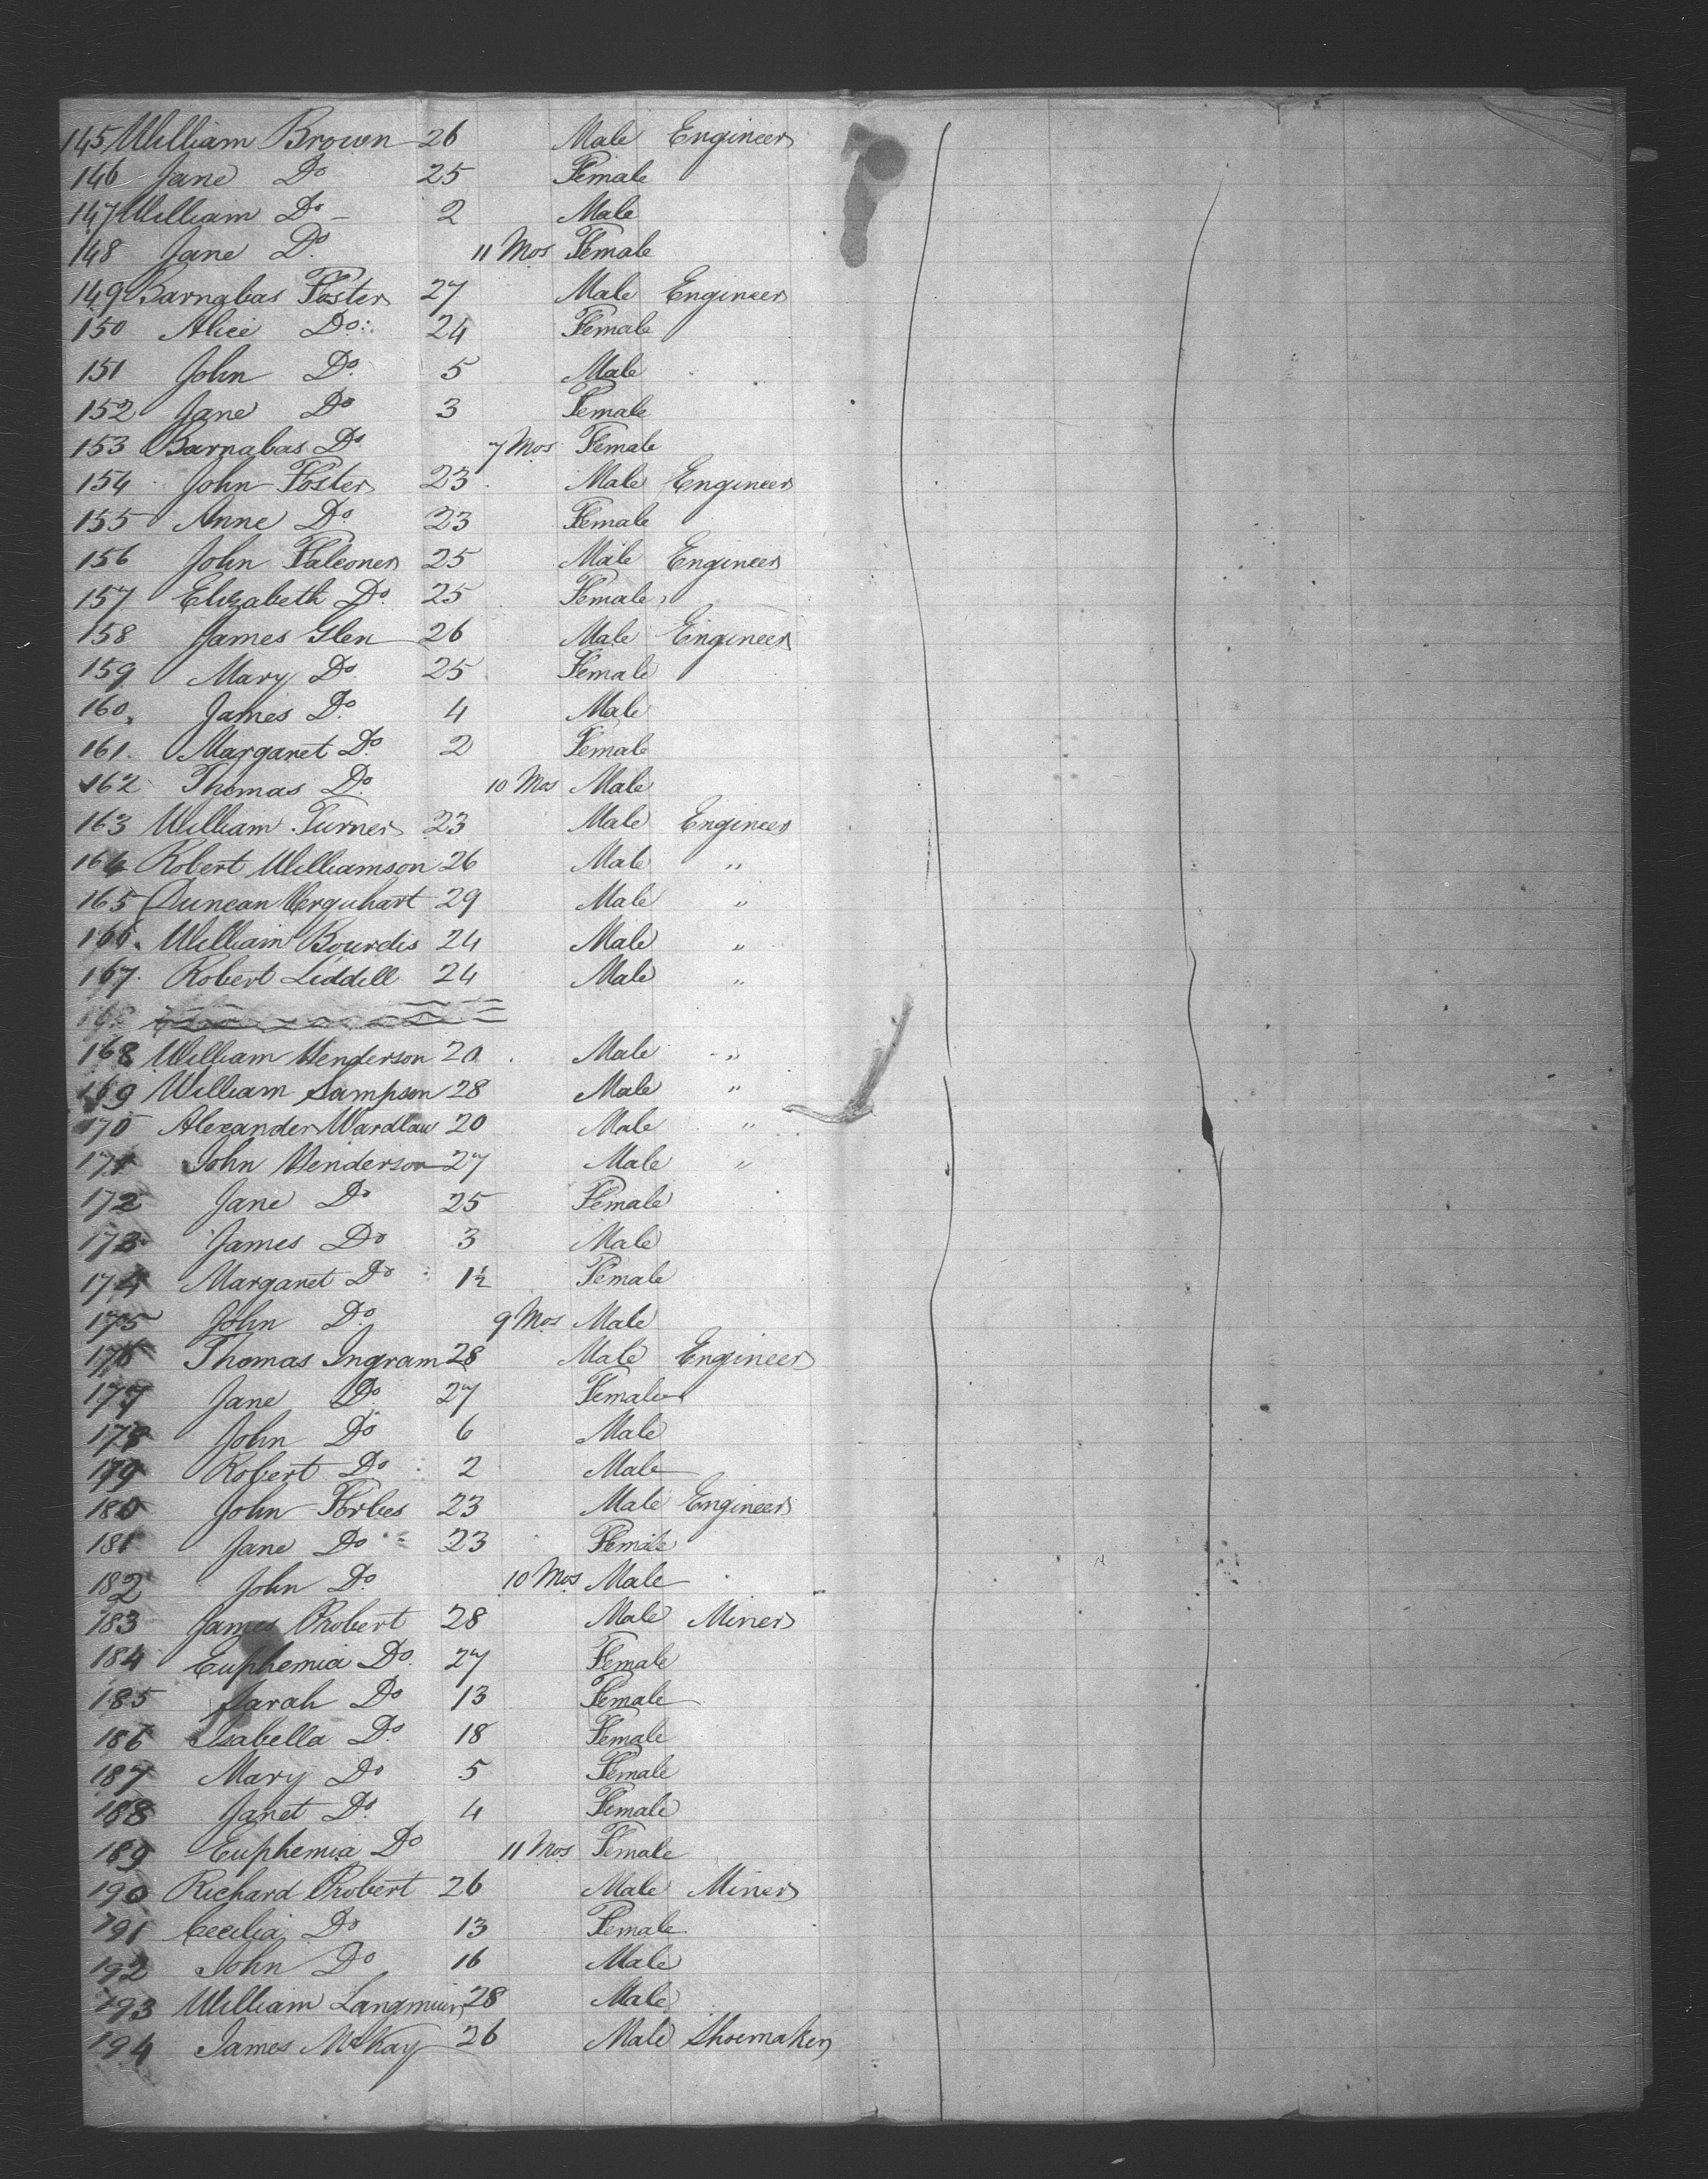 145 William Brown 26 Male Engineer
146 Jane Do 25 Female
147 William Do - 2 Male
148 Jane Do 11 Mos Female
149 Barnabas Foster 27 Male Engineer
150 Alice Do 24 Female
151 John Do 5 Male
152 Jane Do 3 Female
153 Barnabas Do 7 Mos Female
154 John Foster 23 Male Engineer
155 Anne Do 23 Female
156 John Falconer 25 Male Engineer
157 Elizabeth Do 25 Female
158 James Glen 26 Male Engineer
159 Mary Do 25 Female
160 James Do 4 Male
161 Margaret Do 2 Female
162 Thomas Do 10 Mos Male
163 William Turner 23 Male Engineer
164 Robert Williamson 26 Male "
165 Duncan Urquhart 29 Male "
166 William Bourdis 24 Male "
167 Robert Liddell 24 Male "
168 William Henderson 20 Male "
169 William Sampson 28 Male "
170 Alexander Wardlaw 20 Male "
171 John Henderson 27 Male "
172 Jane Do 25 Female
173 James Do 3 Male
174 Margaret Do 1½ Female
175 John Do 9 Mos Male
176 Thomas Ingram 28 Male Engineer
177 Jane Do 27 Female
178 John Do 6 Male
179 Robert Do 2 Male
180 John Forbes 23 Male Engineer
181 Jane Do 23 Female
182 John Do 10 Mos Male
183 James Probert 28 Male Miner
184 Euphemia Do 27 Female
185 Sarah Do 13 Female
186 Isabella Do 18 Female
187 Mary Do 5 Female
188 Janet Do 4 Female
189 Euphemia Do 11 Mos Female
190 Richard Probert 26 Male Miner
191 Cecilia Do 13 Female
192 John Do 16 Male
193 William Langmuir 28 Male
194 James McKay 26 Male Shoemaker